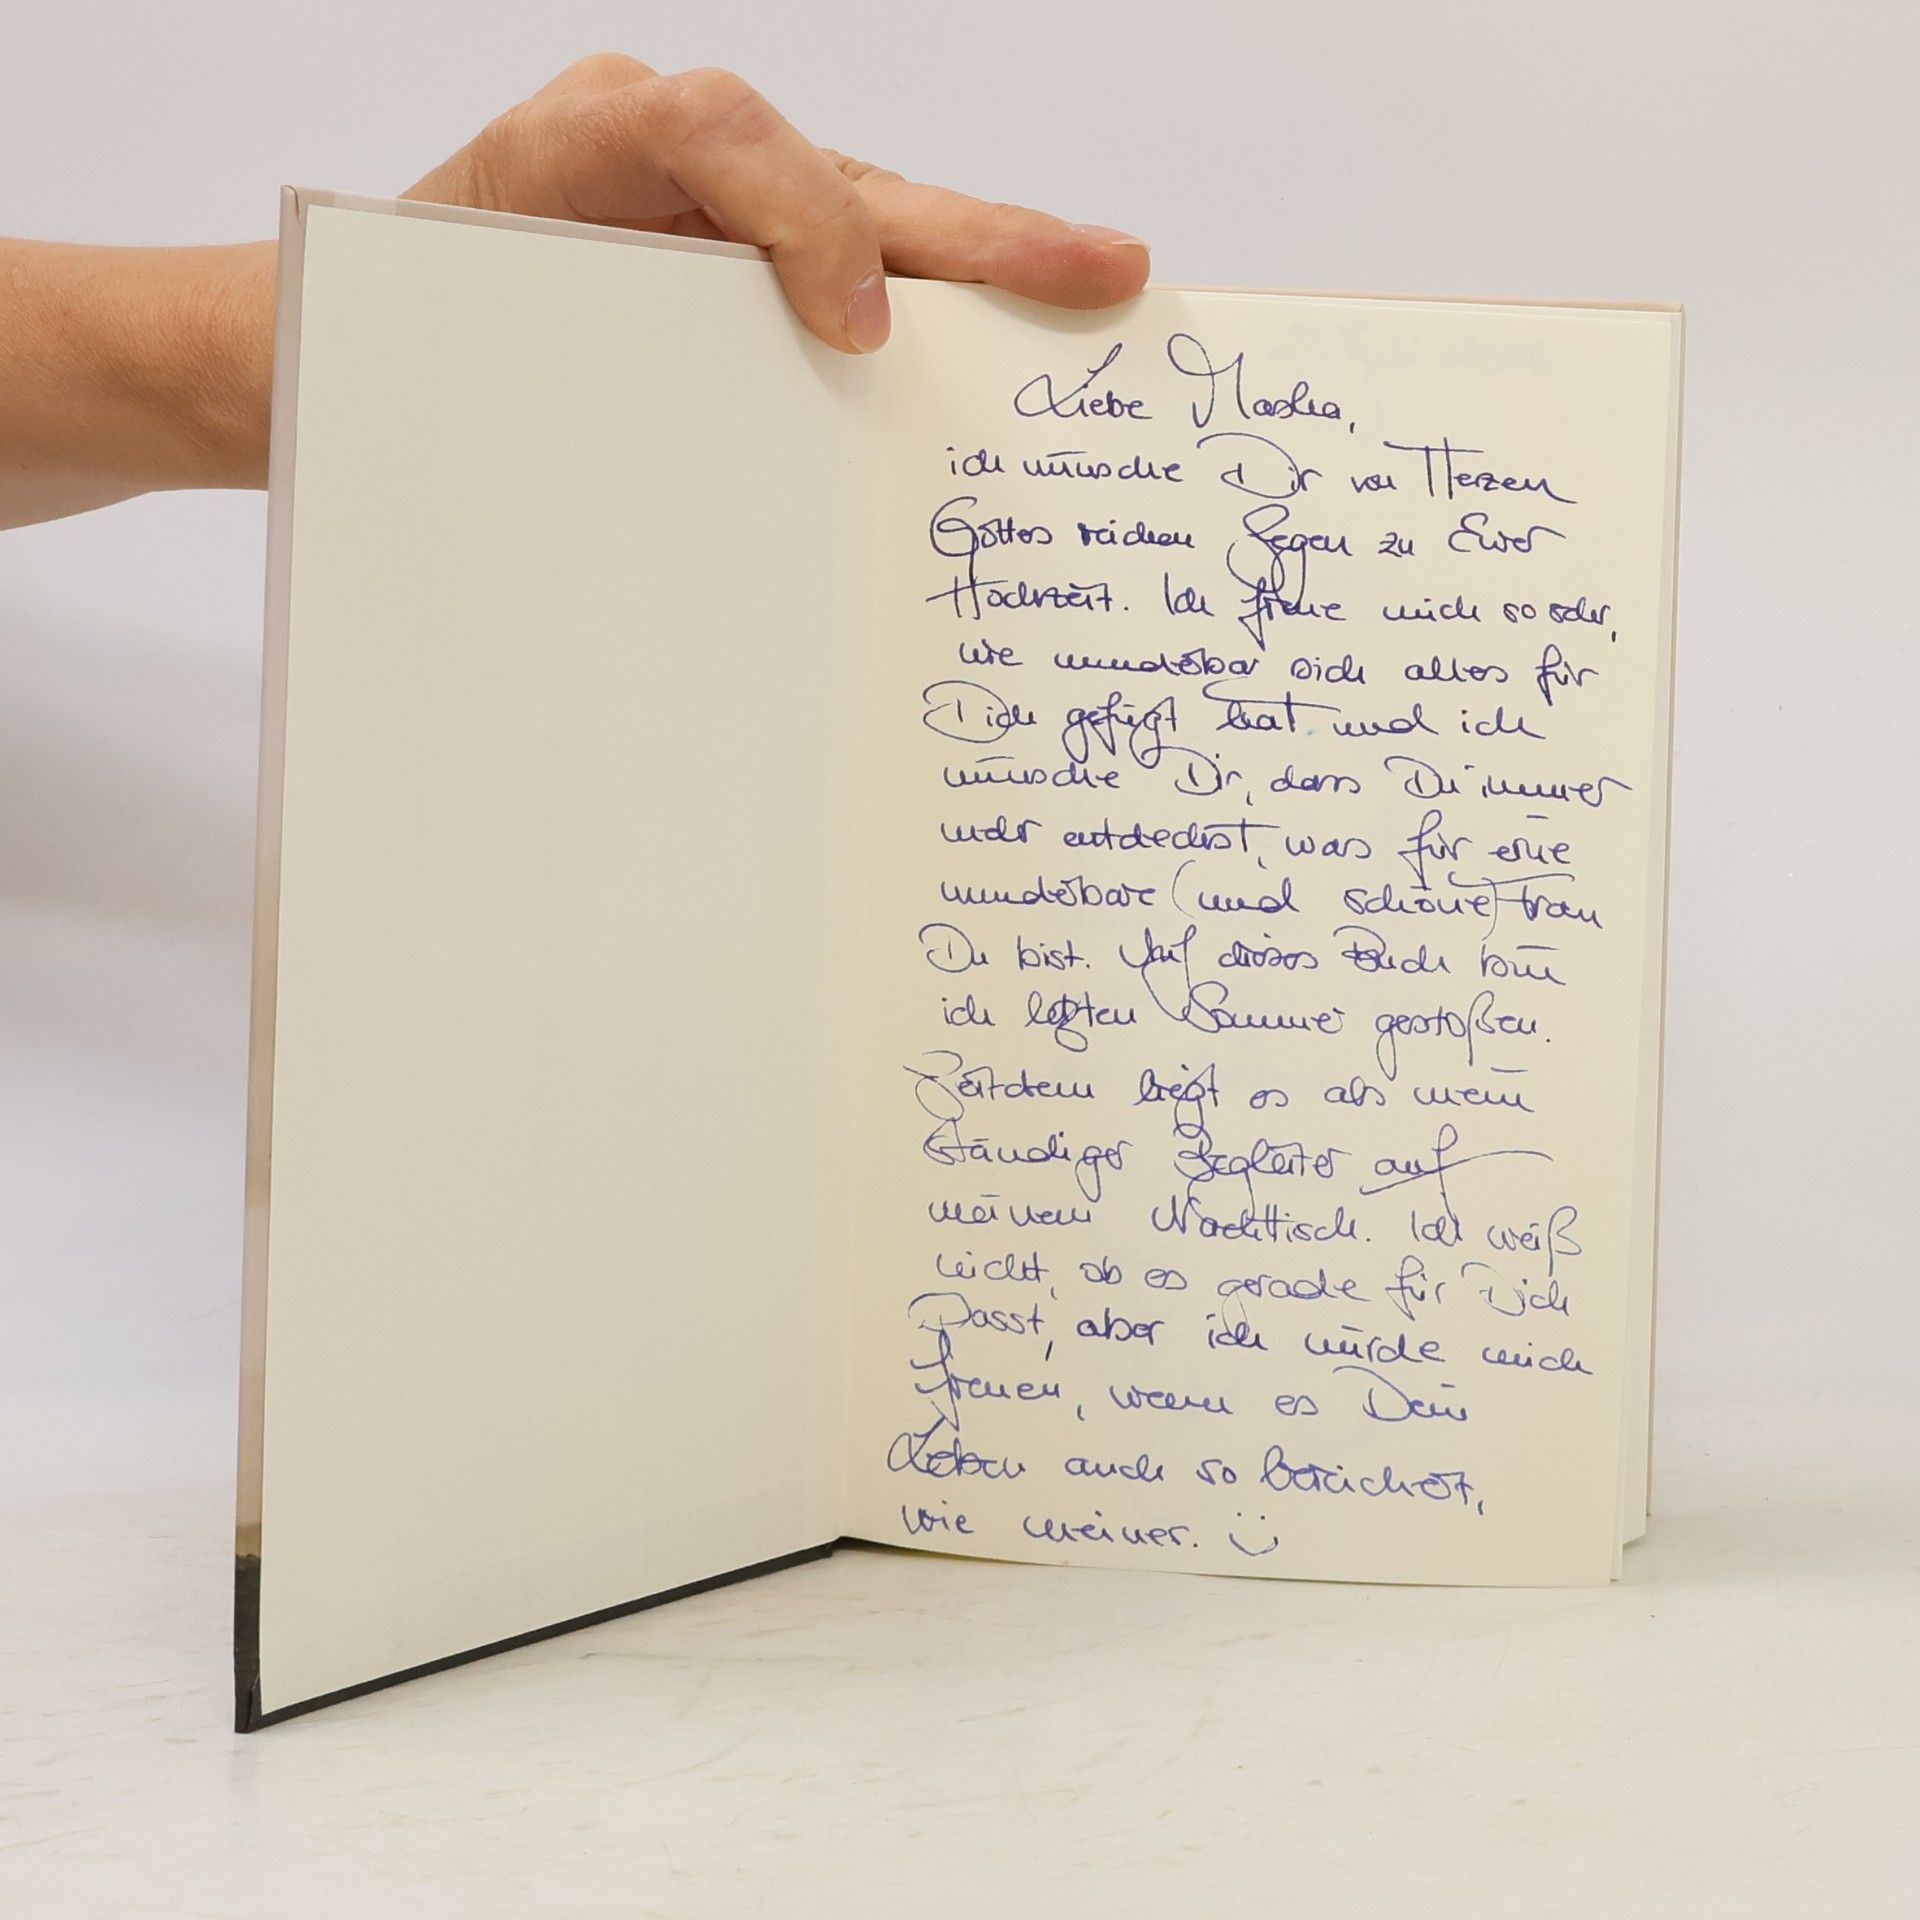 Liebe Mascha,
ich wünsche Dir von Herzen
Gottes reichen Segen zu Eurer
Hochzeit. Ich freue mich so sehr,
wie wunderbar sich alles für
Dich gefügt hat und ich
wünsche Dir, dass Du immer
mehr entdeckst, was für eine
wunderbare (und schöne) Frau
Du bist. Auf dieses Buch bin
ich letzten Sommer gestoßen.
Seitdem liegt es als mein
ständiger Begleiter auf
meinem Nachttisch. Ich weiß
nicht, ob es gerade für Dich
passt, aber ich würde mich
freuen, wenn es Dein
Leben auch so bereichert,
wie meiner. :)